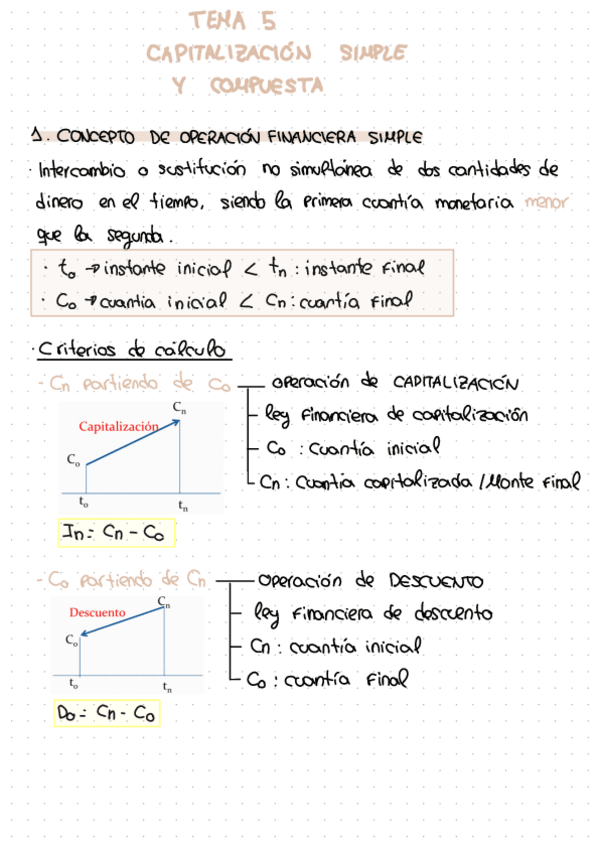 TEMA 5
CAPITALIZACIÓN SIMPLE
Y COMPUESTA
1. CONCEPTO DE OPERACIÓN FINANCIERA SIMPLE
· Intercambio o sustitución no simultánea de dos cantidades de
dinero en el tiempo, siendo la primera cuantía monetaria menor
que la segunda.
· to → instante inicial < tn : instante final
· Co → cuantia inicial < Cn : cuantía final
· Criterios de cálculo
- Cn partiendo de Co — operación de CAPITALIZACIÓN
ley financiera de capitalización
Co : cuantía inicial
Cn : Cuantia capitalizada / Monte final
Capitalización
Cn
Co
to
tn
In = Cn - Co
- Co partiendo de Cn — operación de DESCUENTO
ley financiera de descuento
Cn : cuantía inicial
Co : cuantía final
Descuento
Cn
Co
to
tn
Do = Cn - Co